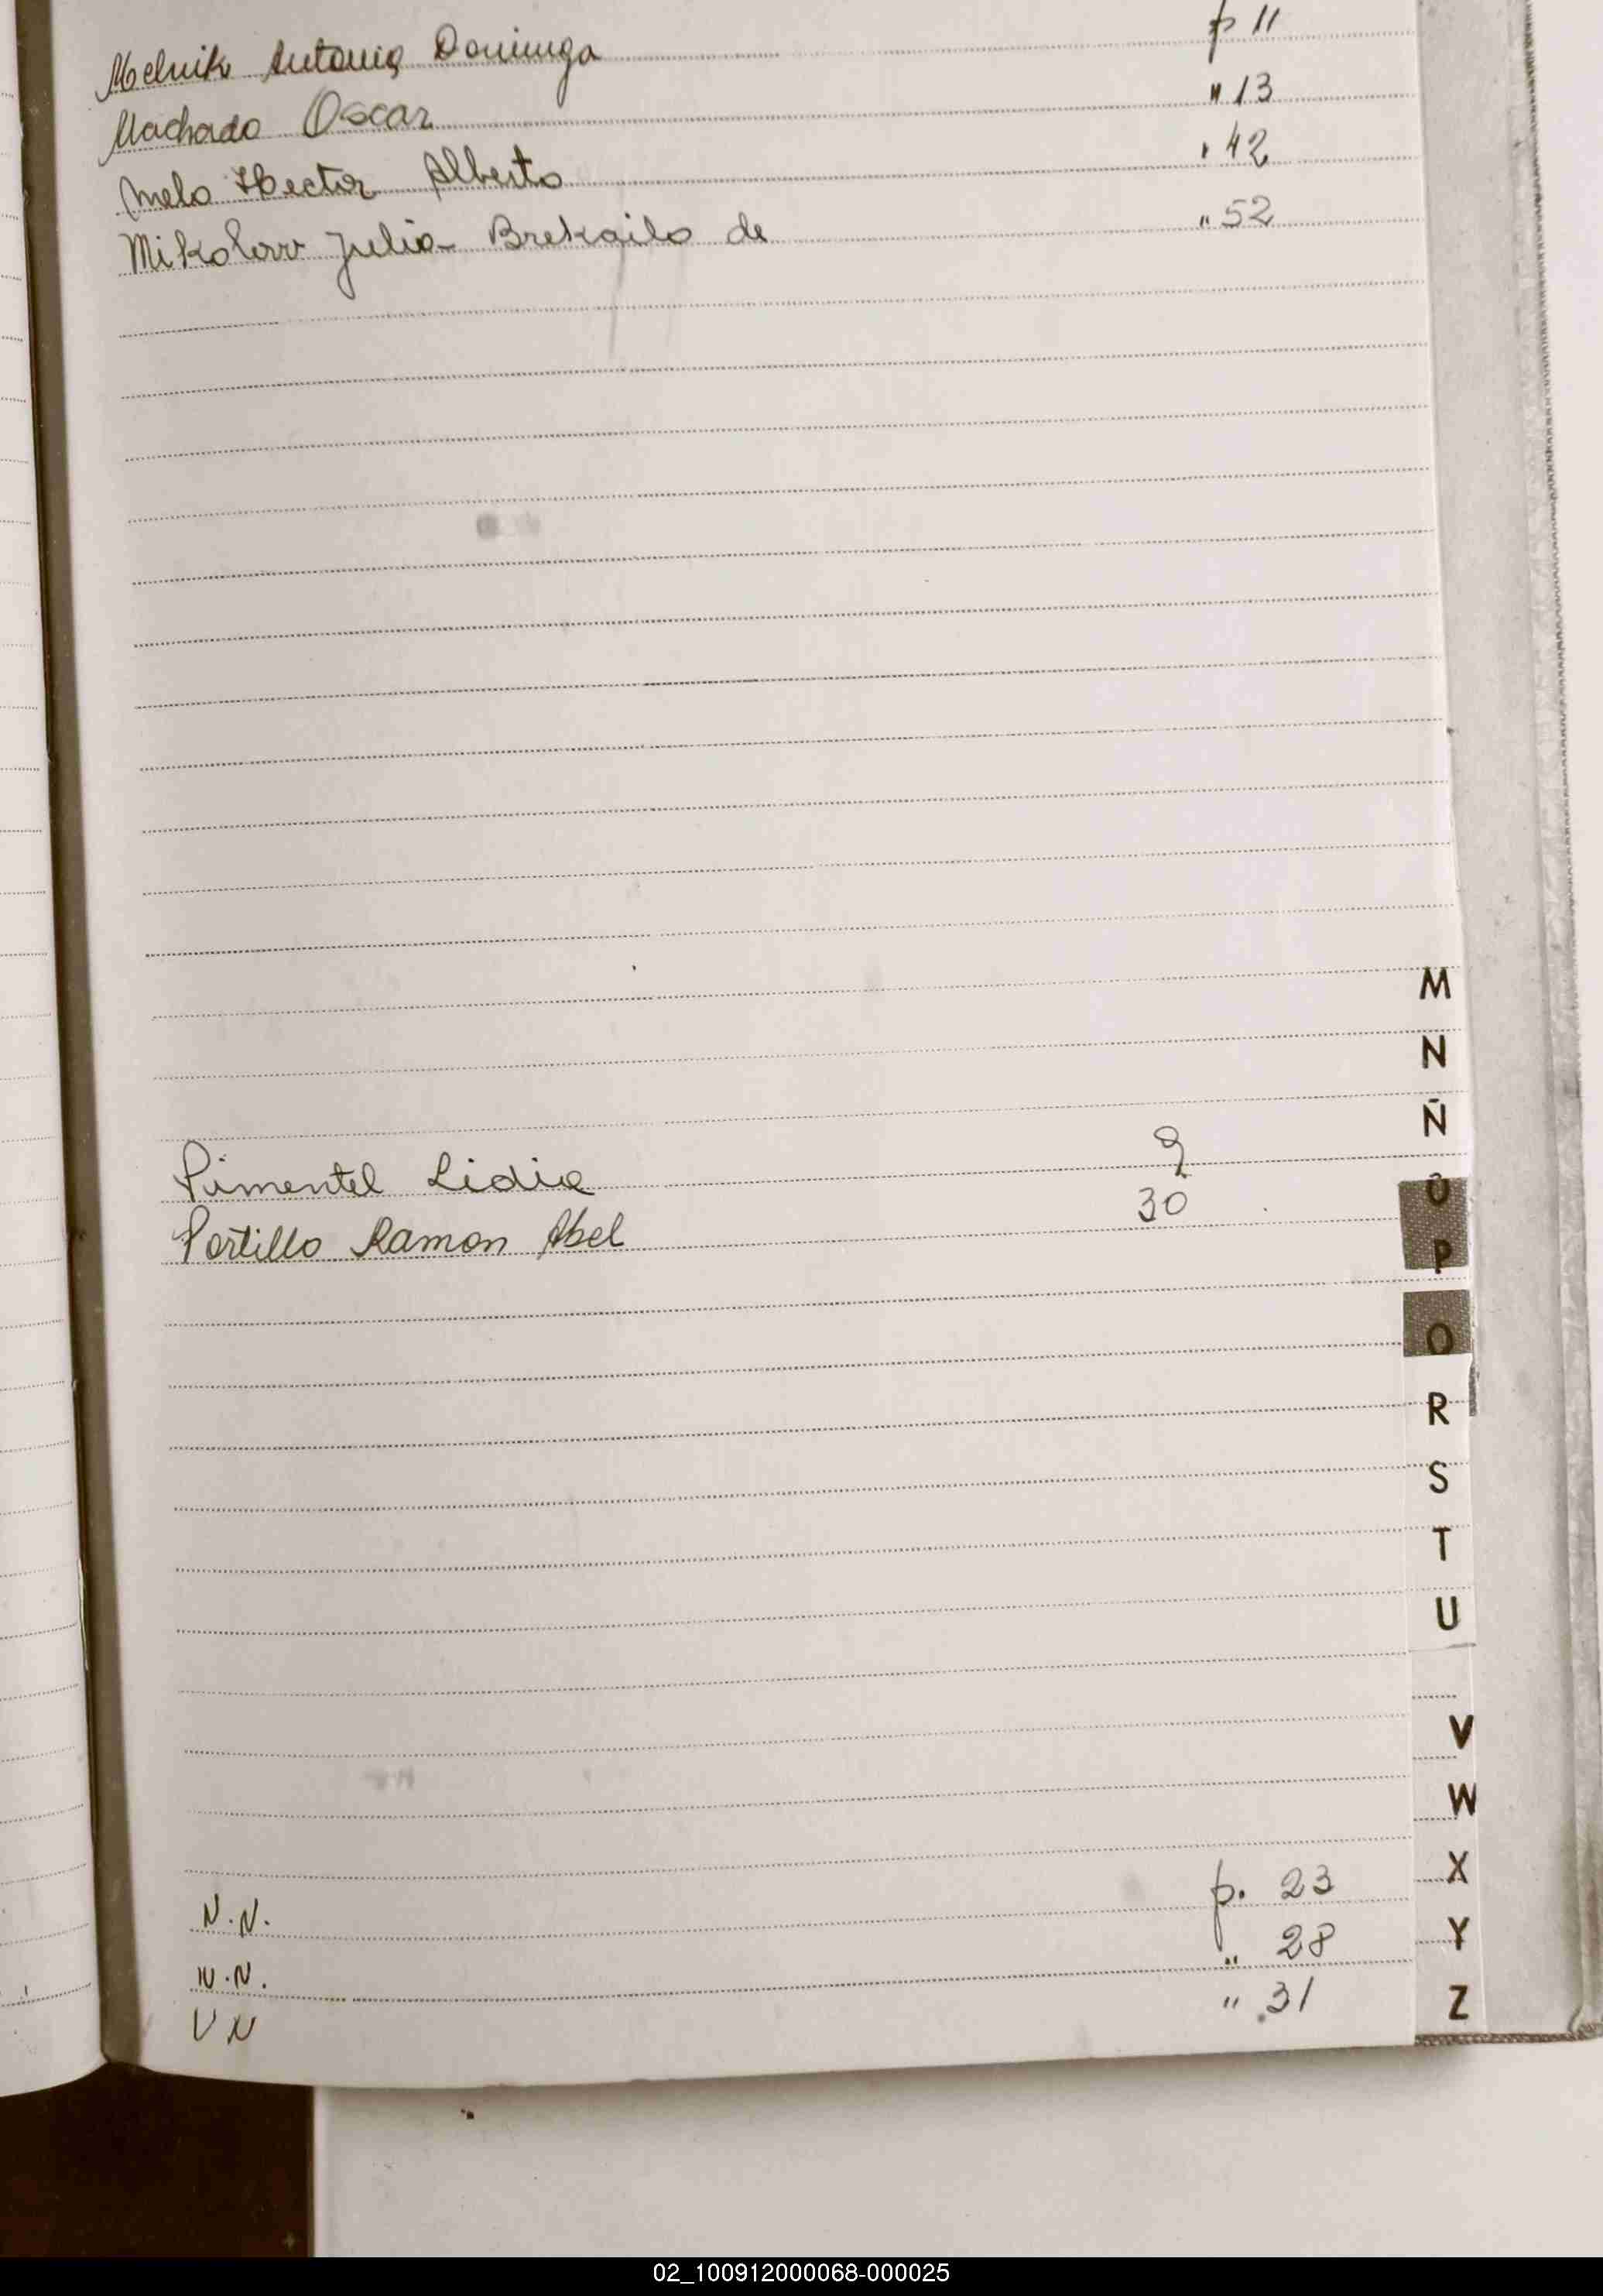 Melnik Antonia Dominga p 11
Machado Oscar " 13
Melo Hector Alberto " 42
Mikolow Julia Brekailo de " 52
M
N
Ñ
Pimentel Lidia 9
O
Portillo Ramon Abel 30
P
Q
R
S
T
U
V
W
X
N.N. p. 23
Y
N.N. " 28
Z
N N " 31
02_100912000068-000025